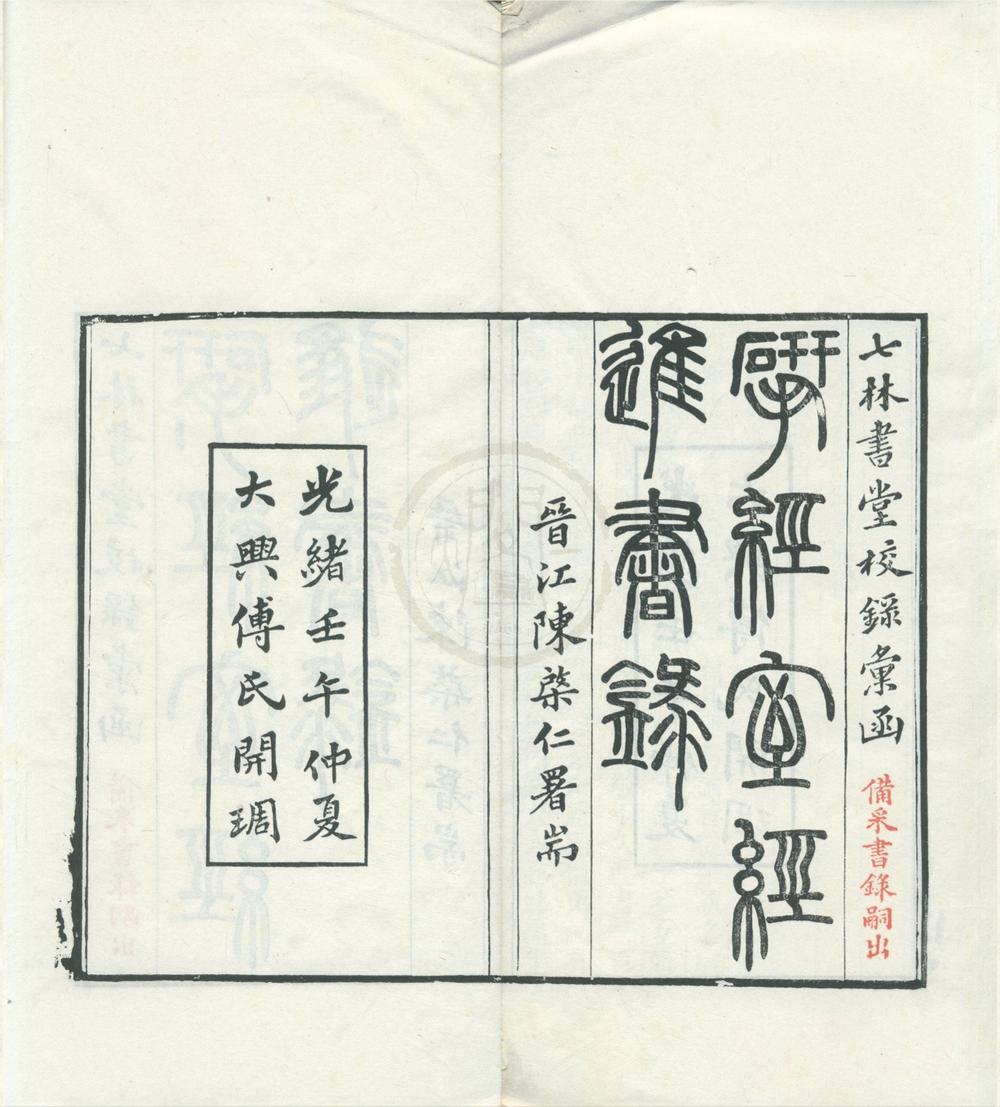 七林書堂校録彙函 備采書錄嗣出
揅經室經
進書錄
晉江陳棨仁署耑
光緒壬午仲夏
大興傅氏開琱